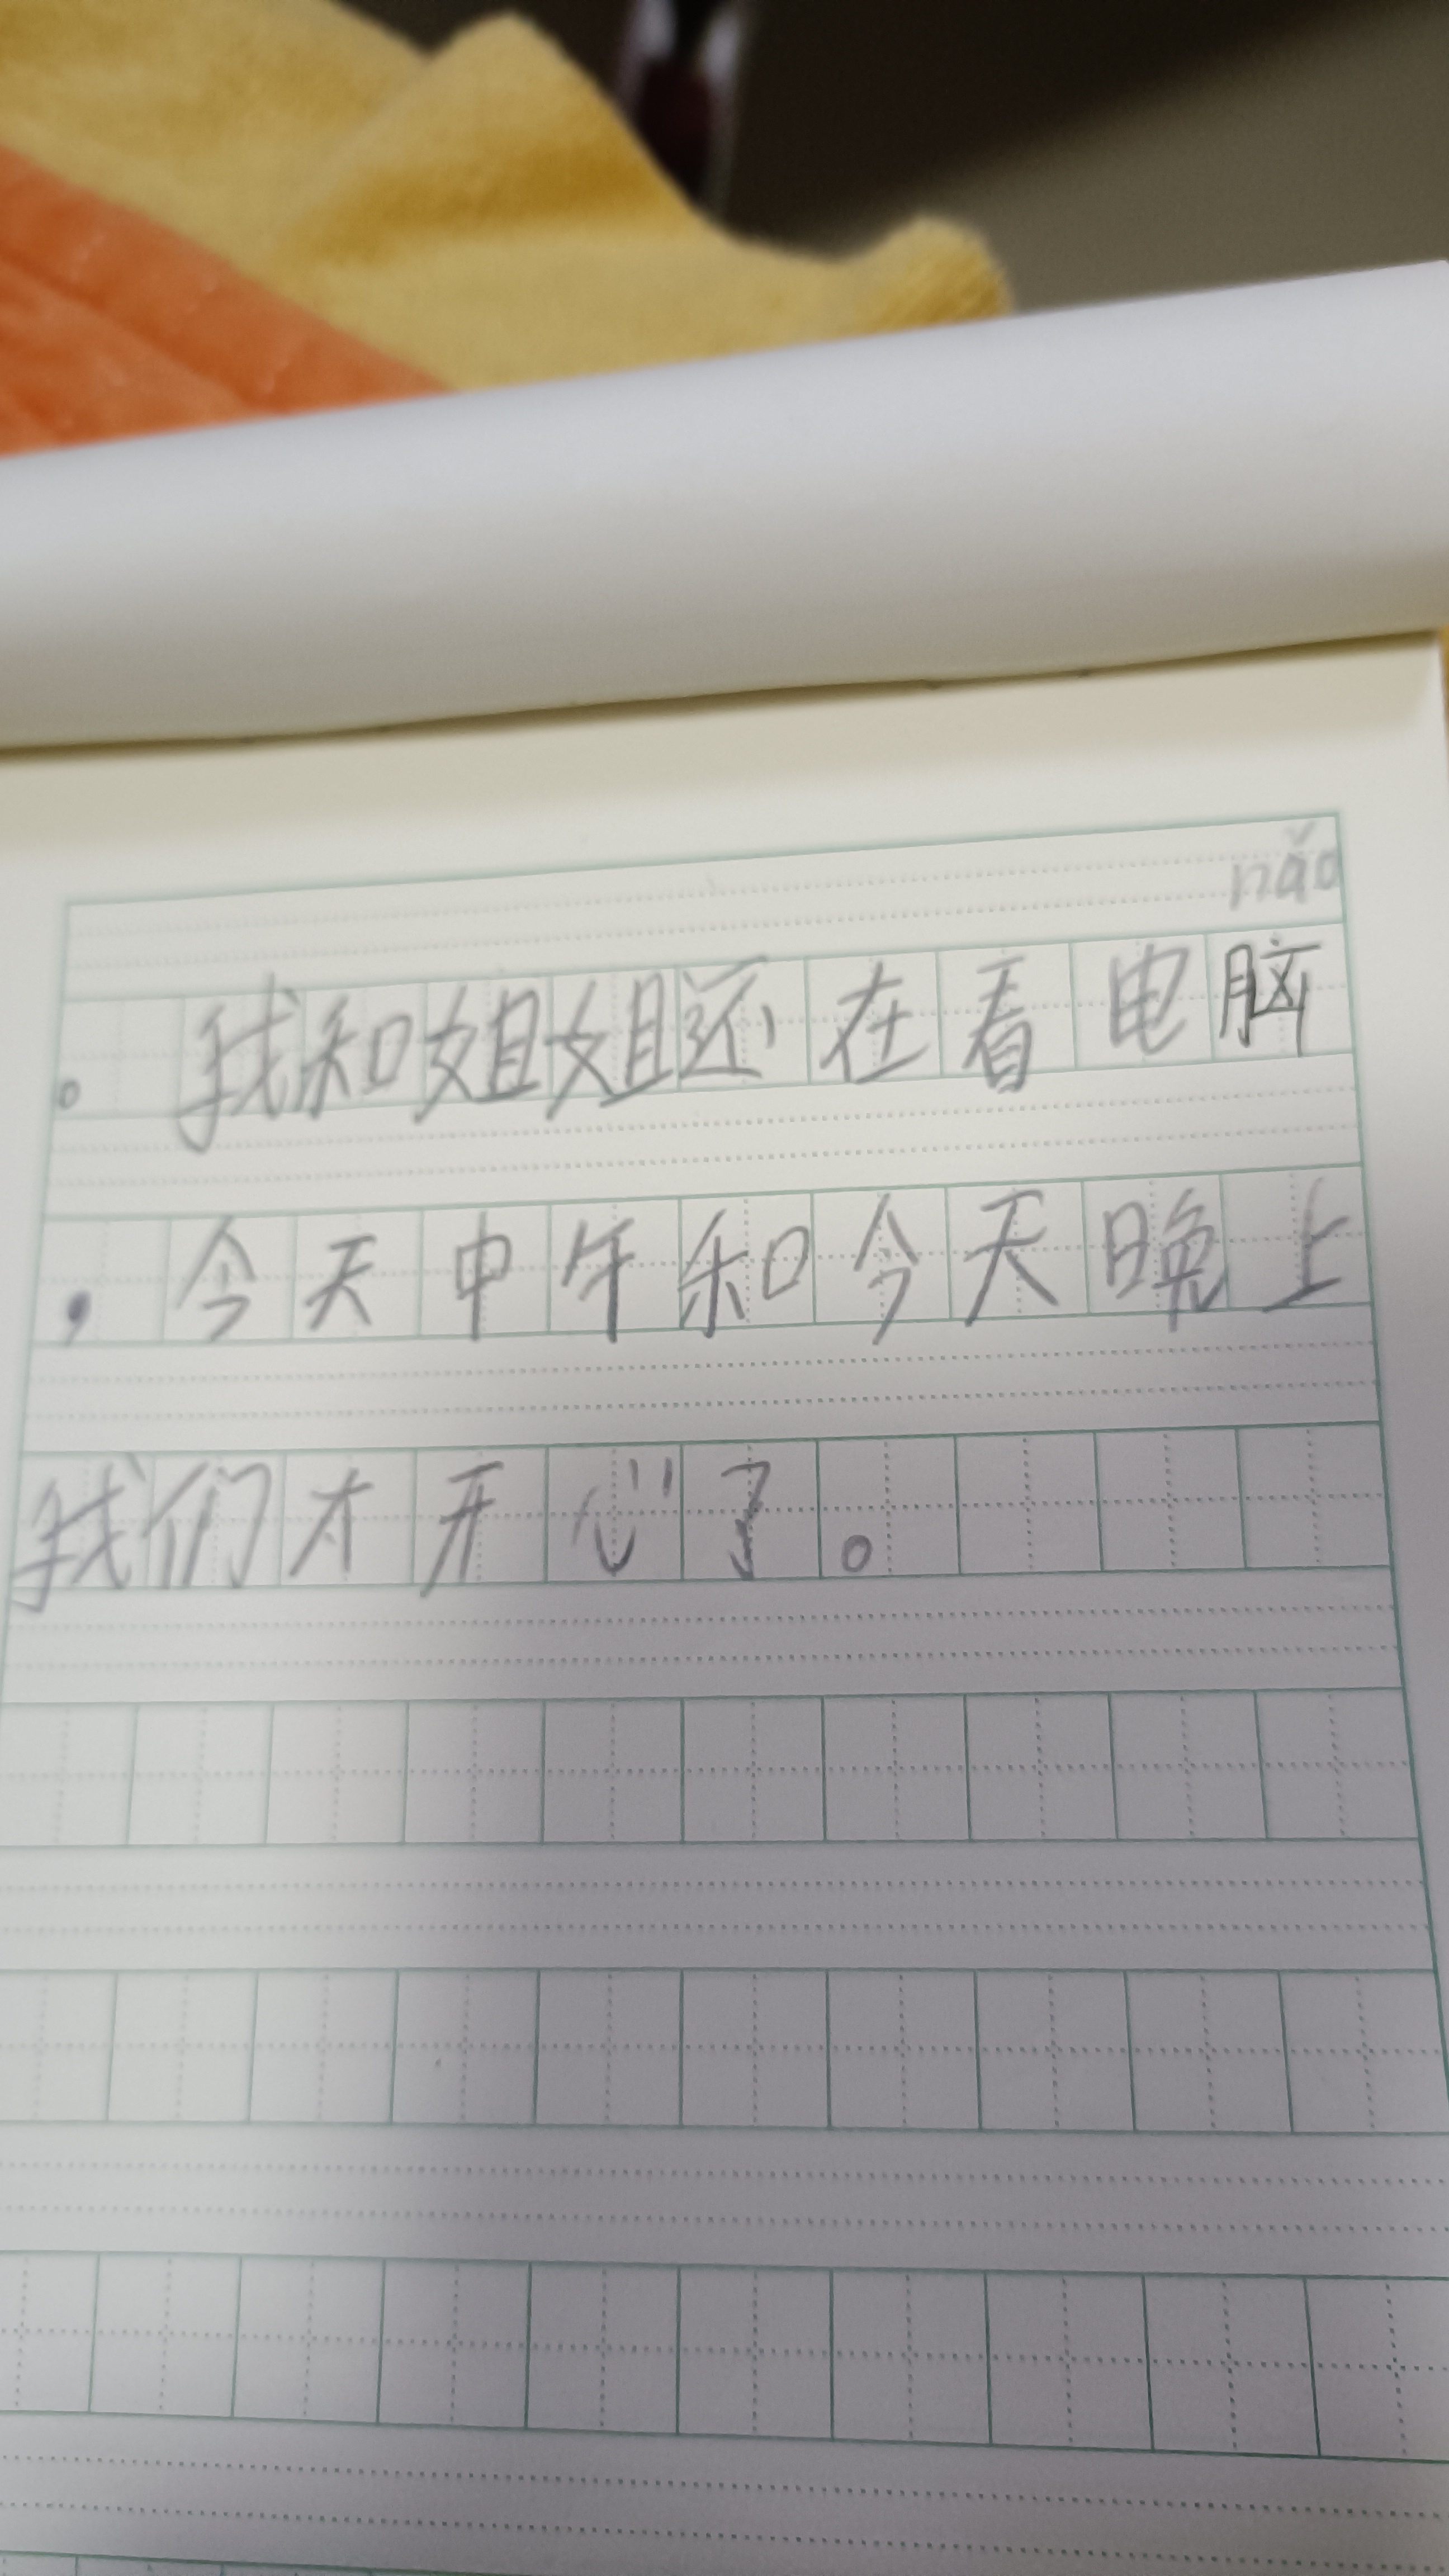 nǎo
。我和姐姐还在看电脑
，今天中午和今天晚上
我们才开心了。